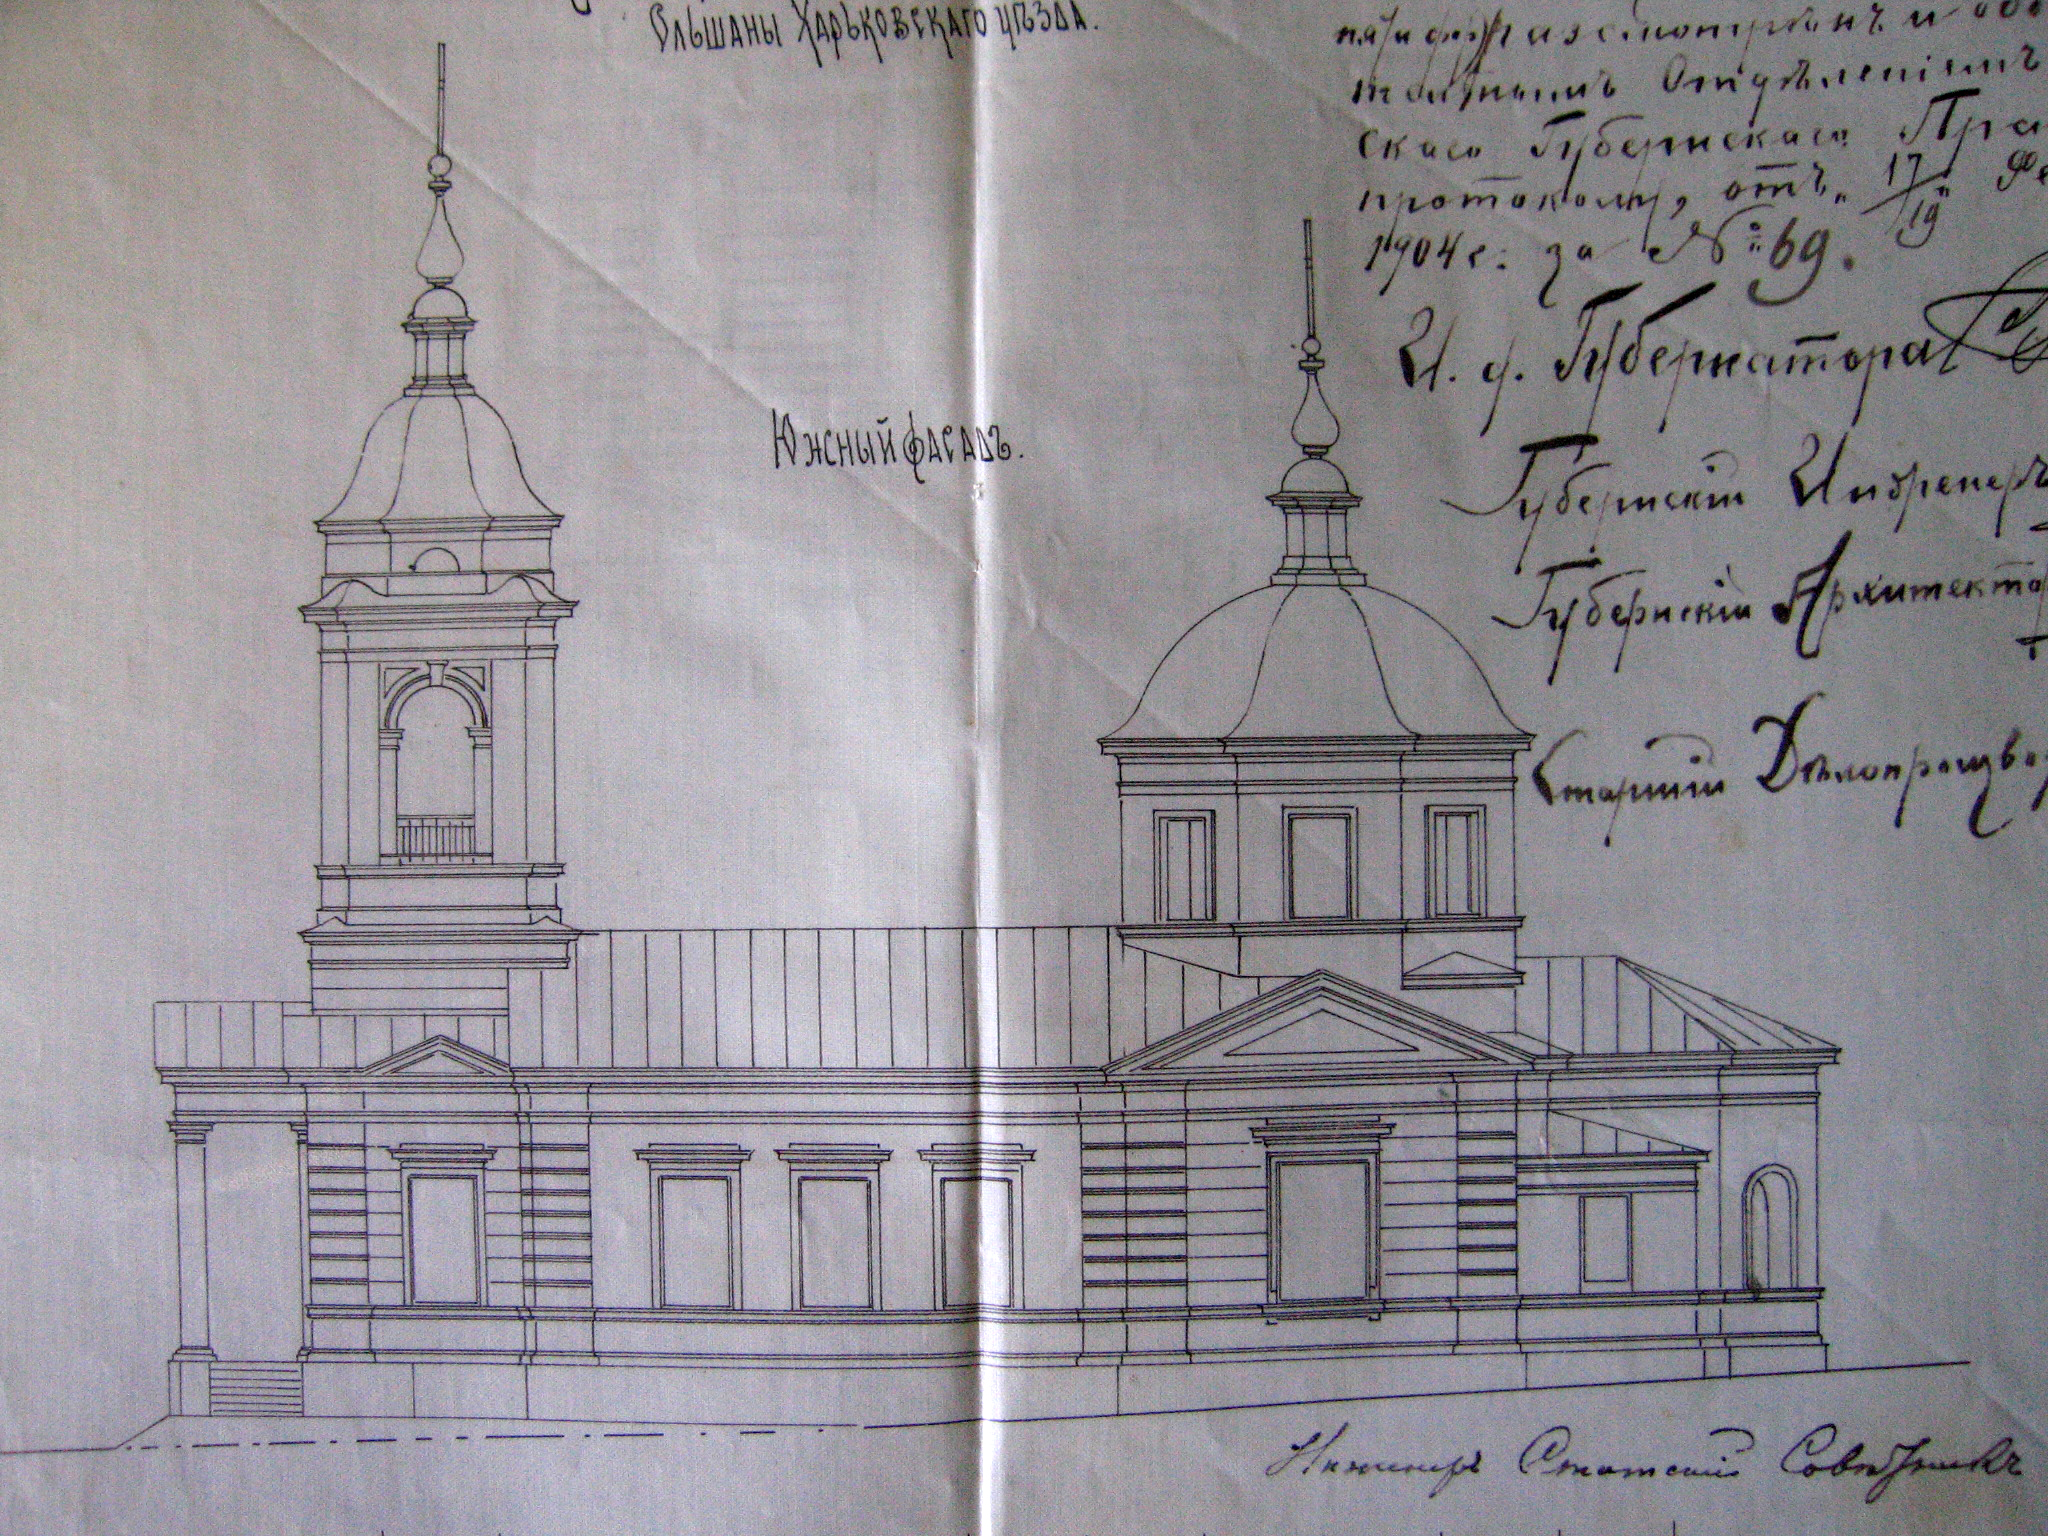 Ольшаны Харьковскаго уѣзда.
разсмотрѣнъ и
Отдѣленіемъ
скаго Губернскаго Пра
протоколу, отъ „17/19“ Фе
1904 г. за № 69.
И. д. Губернатора
Южный фасадъ.
Губернскій Инженеръ
Губернскій Архитекто
Старшій Дѣлопроизво
Инженеръ Статскій Совѣтникъ